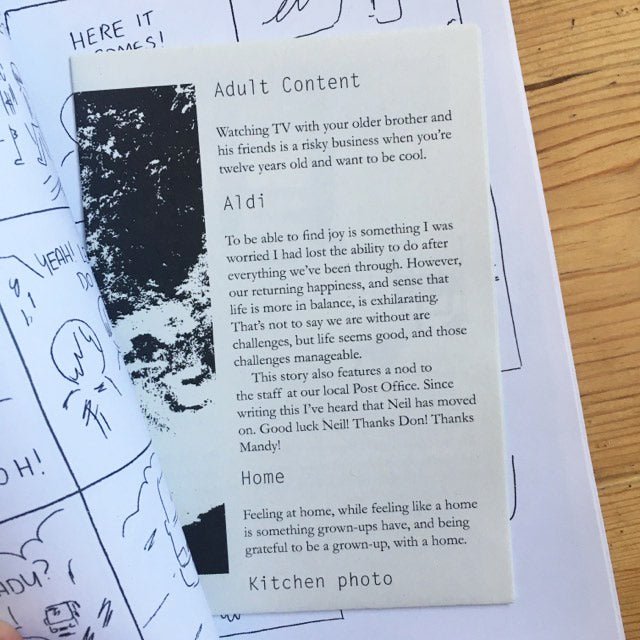 HERE IT
YEAH!
OH!
Adult Content
Watching TV with your older brother and
his friends is a risky business when you're
twelve years old and want to be cool.
Aldi
To be able to find joy is something I was
worried I had lost the ability to do after
everything we've been through. However,
our returning happiness, and sense that
life is more in balance, is exhilarating.
That's not to say we are without are
challenges, but life seems good, and those
challenges manageable.
This story also features a nod to
the staff at our local Post Office. Since
writing this I've heard that Neil has moved
on. Good luck Neil! Thanks Don! Thanks
Mandy!
Home
Feeling at home, while feeling like a home
is something grown-ups have, and being
grateful to be a grown-up, with a home.
Kitchen photo